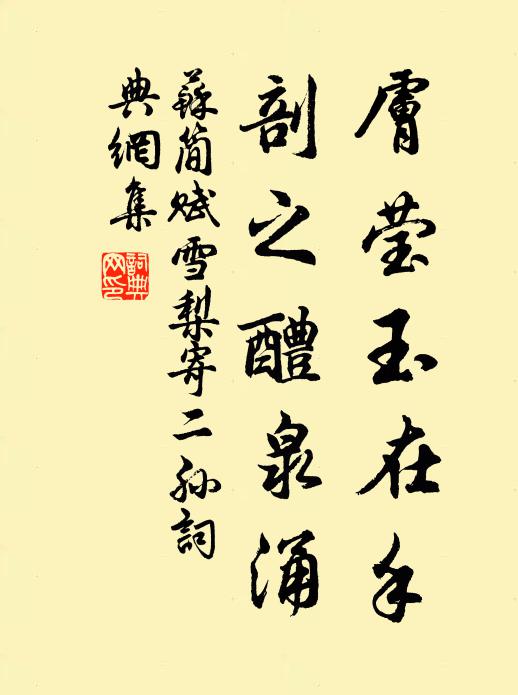 膚瑩玉在手
剖之醴泉涌
蘇簡賦雪梨寄二孫詞
典網集
詞典
网印